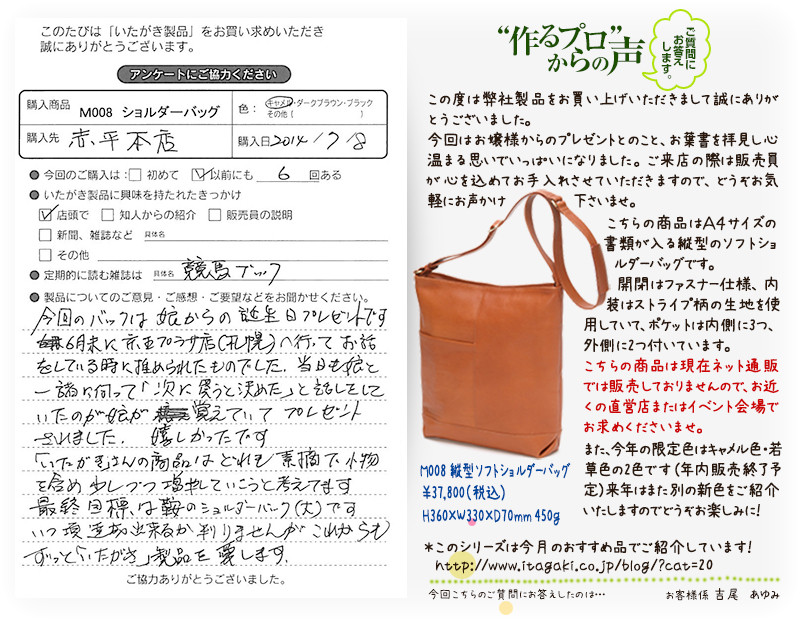 このたびは「いたがき製品」をお買い求めいただき
誠にありがとうございます。
アンケートにご協力ください
購入商品 M008 ショルダーバッグ
色： キャメル・ダークブラウン・ブラック
その他（ ）
購入先 赤平本店
購入日 2014/7/8
今回のご購入は： 初めて 以前にも 6 回ある
いたがき製品に興味を持たれたきっかけ
店頭で 知人からの紹介 販売員の説明
新聞、雑誌など 具体名
その他
定期的に読む雑誌は 具体名 競馬ブック
製品についてのご意見・ご感想・ご要望などをお聞かせください。
今回のバックは娘からの誕生日プレゼントです
6月末に京王プラザ店(札幌)へ行って お話
をしている時に推められたものでした。当日も娘と
一諸に伺って「次に買うと決めた」と話しをして
いたのが娘が 覚えていて プレゼント
されました。 嬉しかったです
「いたがき」さんの商品は どれも 素摘で 小物
を含め 少しづつ 増やしていこうと考えてます
最終目標は鞍のショルダーバック(大)です
いつ頃 出来るか判りませんが これからも
ずっと「いたがき」製品を 愛します。
ご協力ありがとうございました。
“作るプロ”
からの声
ご質問に
お答え
します。
この度は弊社製品をお買い上げいただきまして誠にありが
とうございました。
今回はお嬢様からのプレゼントとのこと、お葉書を拝見し心
温まる思いでいっぱいになりました。ご来店の際は販売員
が心を込めてお手入れさせていただきますので、どうぞお気
軽にお声かけ 下さいませ。
こちらの商品はA4サイズの
書類が入る縦型のソフトショ
ルダーバッグです。
開閉はファスナー仕様、内
装はストライプ柄の生地を使
用していて、ポケットは内側に3つ、
外側に2つ付いています。
こちらの商品は現在ネット通販
では販売しておりませんので、お近
くの直営店またはイベント会場で
お求めくださいませ。
また、今年の限定色はキャメル色・若
草色の2色です(年内販売終了予
定)来年はまた別の新色をご紹介
いたしますのでどうぞお楽しみに!
M008 縦型ソフトショルダーバッグ
¥37,800(税込)
H360×W330×D70mm 450g
＊このシリーズは今月のおすすめ品でご紹介しています!
http://www.itagaki.co.jp/blog/?cat=20
今回こちらのご質問にお答えしたのは… お客様係 吉尾 あゆみ